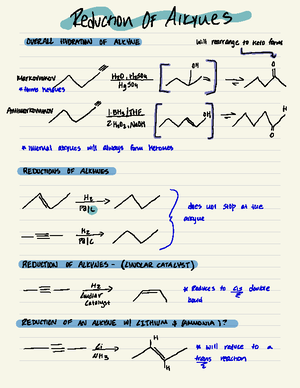 REDUCTION OF ALKYNES
OVERALL HYDRATION OF ALKYNE
Will rearrange to keto form
MARKOVNIKOV
* forms ketones
H₂O, H₂SO₄
HgSO₄
OH
O
ANTIMARKOVNIKOV
1. BH₃/THF
2. H₂O₂, NaOH
OH
O
H
* Internal alkynes will always form ketones
REDUCTIONS OF ALKYNES
H₂
Pd/C
H₂
Pd/C
does not stop at the
alkyne
REDUCTION OF ALKYNES - (LINDLAR CATALYST)
H₂
Lindlar
Catalyst
* Reduces to cis double
Z
bond
REDUCTION OF AN ALKYNE W/ LITHIUM & (AMMONIA)?
Li
NH₃
H
H
* will reduce to a
trans reaction